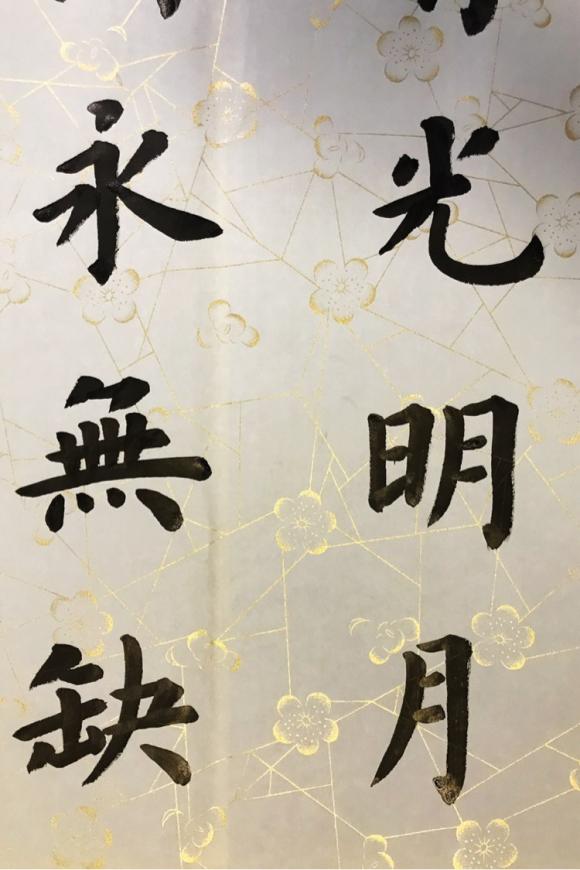 光明月
永無缺